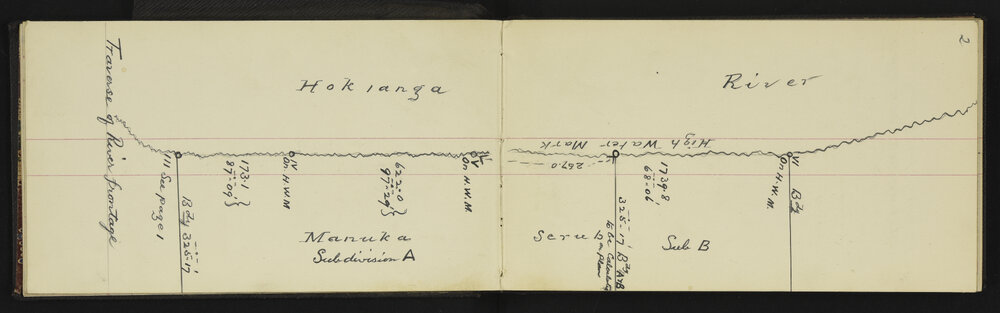 2
Traverse of River frontage
Hokianga
River
High Water Mark
III See page 1
Bdy 325-17
173.1
87-09'
IV
On H.W.M
622.0
97-29'
V
On H.W.M.
267.0
1739.8
68-06'
325-17 Bdy A&B
to be Calculated
on plan
V
On H.W.M.
Bdy
Manuka
Subdivision A
Scrub
Sub B